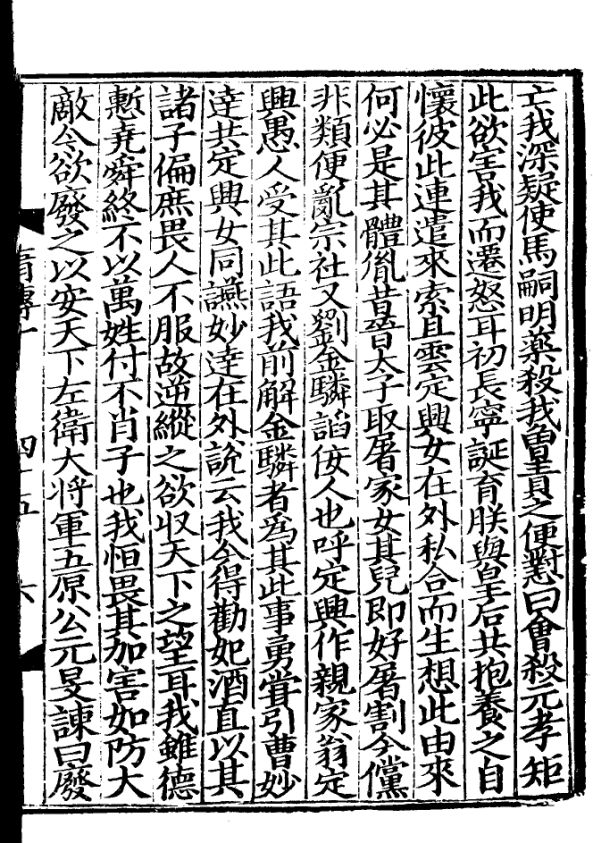 亡我深疑使馬嗣明藥殺我曾責之便懟曰會殺元孝矩
此欲害我而遷怒耳初長寧誕育朕與皇后共抱養之自
懷彼此連遣來索且雲定興女在外私合而生想此由來
何必是其體胤昔晉太子取屠家女其兒即好屠割今儻
非類便亂宗社又劉金驎諂佞人也呼定興作親家翁定
興愚人受其此語我前解金驎者為其此事勇嘗引曹妙
達共定興女同讌妙達在外說云我今得勸妃酒直以其
諸子偏庶畏人不服故逆縱之欲収天下之望耳我雖德
慙堯舜終不以萬姓付不肖子也我恒畏其加害如防大
敵今欲廢之以安天下左衛大將軍五原公元旻諫曰廢
傳十 四十五 六